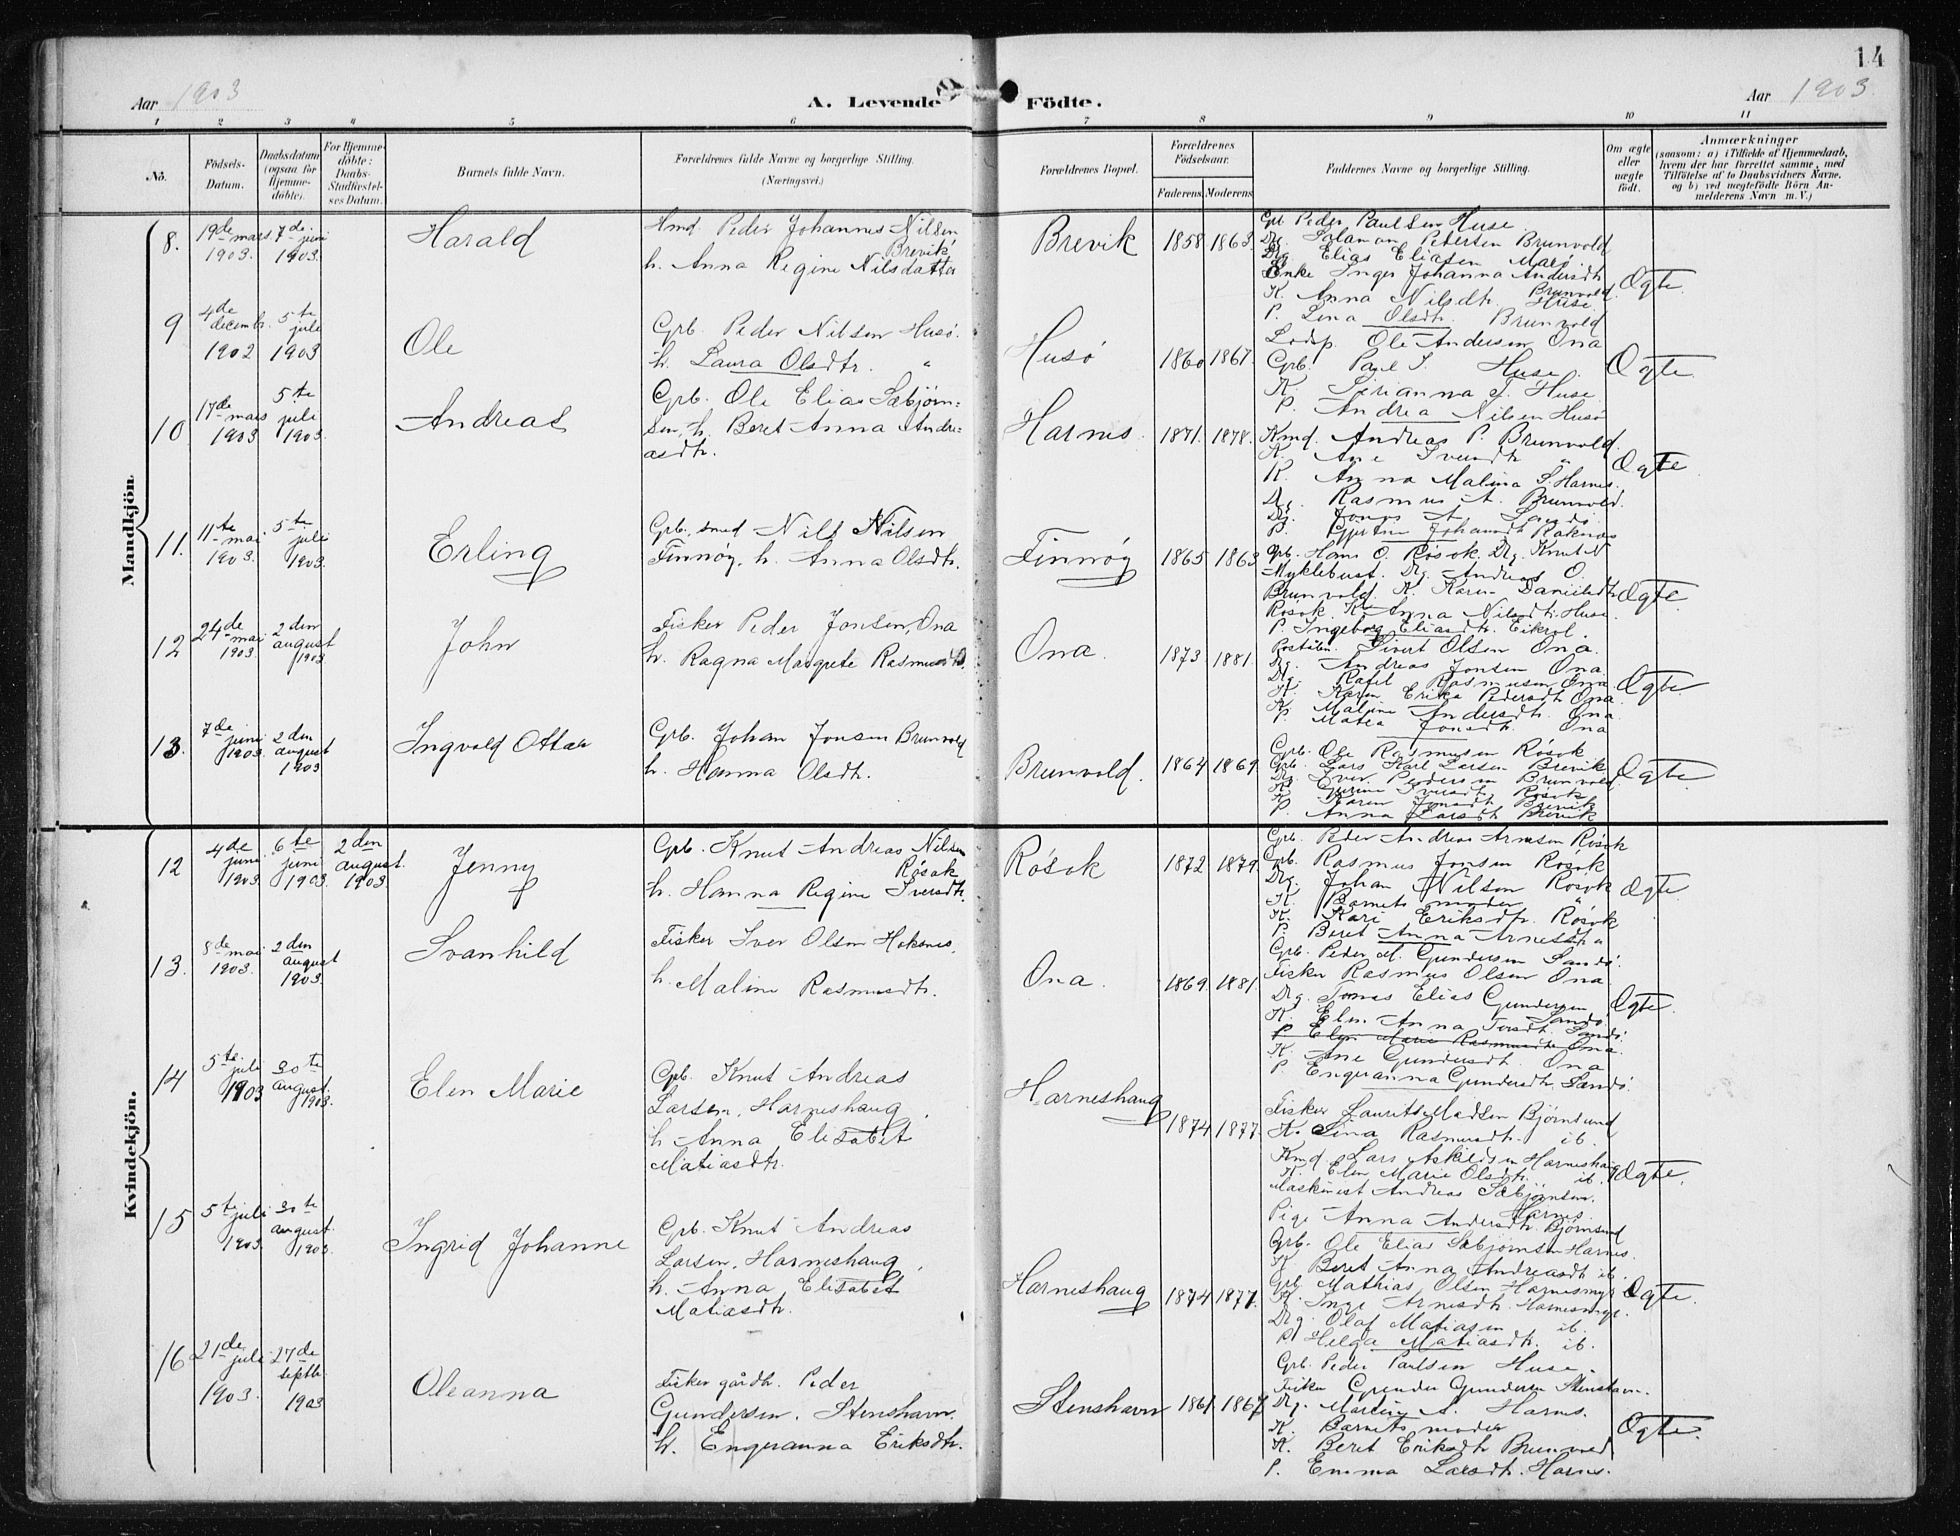 14
Aar 1903
A. Levende Födte.
Aar 1903
1 2 3 4 5 6 7 8 9 10 11
No.
Födsels-Datum.
Daabsdatum (ogsaa for Hjemmedöbte).
For Hjemmedöbte: Daabs-Stadfæstelses Datum.
Barnets fulde Navn.
Forældrenes fulde Navne og borgerlige Stilling.
(Næringsvei.)
Forældrenes Bopæl.
Forældrenes Födselsaar.
Faderens Moderens
Faddernes Navne og borgerlige Stilling.
Om ægte eller uægte födt.
Anmærkninger
(saasom: a) i Tilfælde af Hjemmedaab, hvem der har forrettet samme, med Tilföielse af to Daabsvidners Navne, og b) ved uægtefödte Börn Anmelderens Navn m. V.)
Mandkjön.
8. 19de mars 1903. 7de juni 1903. Harald
Kmd Peder Johannes Nilsen Brevik
h. Anna Regine Nilsdatter
Brevik 1858 1863.
Grb Peder Paulsen Huse.
Drg. Salamon Petersen Brunvold
Drg Elias Eliasen Marö.
Enke Inger Johanna Andersdtr Brunvold.
K. Anna Nilsdtr. Huse
P. Lina Olsdtr. Brunvold
Ægte.
9 4de decembr. 1902 5te juli 1903 Ole
Grb. Peder Nilsen Husö.
h. Laura Olsdtr. "
Husö 1860 1867.
Lodsp. Ole Andersen Ona
Grb. Paul I. Huse.
K. Sirianna P. Huse
P. Andrea Nilsen Husö
Ægte.
10 17de mars 1903 5te juli 1903. Andreas
Grb. Ole Elias Sæbjørn-
sen, h. Beret Anna Andre-
asdtr.
Harnes. 1871. 1878.
Kmd. Andreas P. Brunvold
K. Ane Iversdtr "
K. Anna Malina S. Harnes.
Drg. Rasmus A. Brunvold.
Drg. Jonas A. Sandö.
P. Gjertine Johansdtr Raknæs
Ægte
11. 11te mai 1903. 5te juli 1903. Erling
Grb. smed Nils Nilsen
Finnöy. h. Anna Olsdtr.
Finnöy 1865 1863
Grb. Hans O. Rösok. Drg. Knut N
Myklebust. Drg. Andreas O.
Brunvold. K. Karen Danielsdtr
Rösok. K. Anna Nilsdtr. Huse
P. Ingeborg Eliasdtr. Eikrol.
Ægte
12 24de mai 1903 2den august 1903 John
Fisker Peder Jonsen, Ona
h. Ragna Margrete Rasmusdtr.
Ona. 1873 1881.
Poståbn. Sivert Olsen Ona.
Drg. Andreas Jonsen Ona
Drg. Rafel Rasmusen Ona
K. Karen Erika Pedersdtr Ona
K. Maline Andersdtr. Ona
P. Matea Jonsdtr. Ona
Ægte
13. 7de juni 1903. 2den august 1903 Ingvald Ottar
Grb. Johan Jonsen Brunvold
h. Hanna Olsdtr.
Brunvold. 1864 1869
Grb. Ole Rasmusen Rösok
Grb. Lars Karl Larsen Brevik
Drg. Iver Pedersen Brunvold
K. Gurine Iversdtr Rösok
K. Karen Jonsdtr Brevik
P. Anna Larsdtr Brevik
Ægte
Kvindekjön.
12 4de juni 1903. 6te juni 1903. 2den august. 1903. Jenny
Grb. Knut Andreas Nilsen Rösok
h. Hanna Regine Iversdtr.
Rösok 1872 1879.
Grb. Peder Andreas Arnesen Rösok
Grb. Rasmus Jonsen Rösok
Drg. Johan Nilsen Rösok
K. Barnets moder "
K. Kari Eriksdtr. Rösok
P. Beret Anna Arnesdtr "
Ægte
13. 8de mai 1903. 2den august 1903. Svanhild
Fisker Iver Olsen Hoksnes.
h. Maline Rasmusdtr.
Ona. 1869. 1881.
Grb. Peder M. Gundersen Sandö.
Fisker Rasmus Olsen Ona
Drg. Tomas Elias Gundersen Sandö.
K. Elen Anna Iversdtr. Sandö.
P. Elen Marie Rasmusdtr Ona.
K. Ane Gundersdtr. Ona
P. Enqvanna Gundersdtr. Sandö.
Ægte.
14 5te juli 1903 30te august. 1903. Elen Marie
Grb. Knut Andreas
Larsen, Harneshaug.
h. Anna Elisabet
Matiasdtr.
Harneshaug 1874 1877.
Fisker Laurits Madsen Bjørnsund
K. Lina Rasmusdtr. ib.
Kmd Lars Askildsen Harneshaug
K. Elen Marie Olsdtr. ib.
Maskinist Andreas Sæbjørnsen. Harnes.
Pige Anna Andersdtr. Bjørnsund
Ægte.
15 5te juli 1903. 30te august. 1903. Ingrid Johanne
Grb. Knut Andreas
Larsen, Harneshaug,
h. Anna Elisabet
Matiasdtr.
Harneshaug 1874 1877.
Grb. Ole Elias Sæbjørnsen Harnes.
K. Beret Anna Andreasdtr ib.
Grb Mathias Olsen Harnesmyr
K. Inge Arnesdtr. Harnesmyr.
Drg. Olaf Matiasen ib.
P. Helga Matiasdtr. ib.
Ægte.
16 21de juli 1903. 27de septbr. 1903 Oleanna
Fisker gårdbr. Peder
Gundersen. Stenshavn.
h. Enqvanna Eriksdtr.
Stenshavn 1861. 1867
Grb. Peder Paulsen Huse.
Fisker Gunder Gundersen Stenshavn.
Drg. Martin A. Harnes.
K. Barnets moder
K. Beret Eriksdtr Brunvold
P. Emma Larsdtr. Harnes.
Ægte.